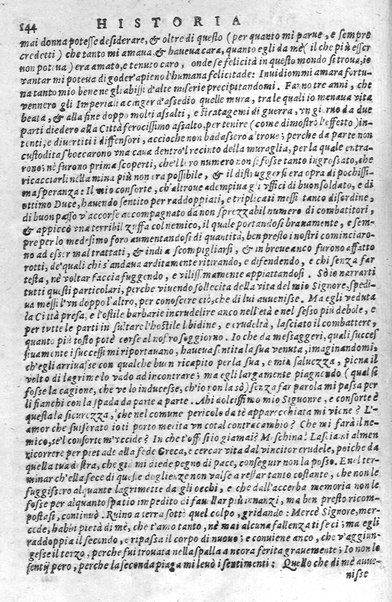 144 HISTORIA
mai donna potesse desiderare, & oltre di questo (per quanto mi parue, e sempre
credetti) che tanto mi amaua, & haueua cara, quanto egli da mè (il che più esser
non potea) era amato, e tenuto caro, onde se felicità in questo mondo si troua, io
vantar mi poteua di goder à pieno l'humana felicitade: Inuidiommi amara fortu-
na tanto mio bene ne gli abissi d'alte miserie precipitandomi. Fanno tre anni, che
vennero gli Imperiali à cinger d'assedio quelle mura, trà le quali io menaua vita
beata, & alla fine doppo molti assalti, e stratagemi di guerra, vn giorno da due
parti diedero alla Città ferocissimo assalto, per tenire (come dimostrò l'effetto) in-
tenti, e diuertiti i diffensori, acciochè non badassero a' troui; perche da parte non
custodita sboccarono vna caua dentro 'l recinto della muraglia, per la quale entra-
rono nè furono prima scoperti, che 'l loro numero non fosse tanto ingrossato, che
ricacciarli nella mina più non era possibile, & il distruggerli era opra di pochissi-
ma speranza: Il mio consorte, ch'altroue adempiua gli vffici di buon soldato, e di
ottimo Duce, hauendo sentito per raddoppiati, e triplicati messi tanto disordine,
di buon passo v'accorse accompagnato da non sprezzabil numero di combattitori,
& appiccò vna terribil zuffa col nemico, il quale portandosi brauamente, e sem-
pre per lo medesimo foro aumentandosi di quantità, ben presto i nostri cominciaro-
no ad esser maltrattati, & indi à scompigliarsi, & in breue anco furono affatto
rotti, de' quali chi s'andaua arditamente ritirando, e difendendo, e chi senza far
testa, nè voltar faccia fuggendo, e vilissimamente appiattandosi. Sò io narrarti
tutti questi particolari, perche viuendo sollecita della vita del mio Signore, spedi-
ua messi l'vn doppo l'altro, per conoscere ciò, che di lui auuenisse. Ma egli veduta
la Città presa, e l'hostile barbarie incrudelire anco nell'età e nel sesso più debole, e
per tutte le parti in sultar l'hostile libidine, e crudeltà, lasciato il combattere,
quanto più tosto potè corse al nostro soggiorno. Io che da messaggeri, quali succes-
siuamente i successi mi riportauano, haueua sentita la sua venuta, imaginandomi,
ch'egli arriuasse con qualche buon ricapito per la sua, e mia saluezza, piena il
volto di lagrime lo vado ad incontrare; ma egli largamente piagnendo (qual si
fosse la cagione, che ve lo inducesse, ch'io non la sò) senza far parola mi passa per
li fianchi con la spada da parte a parte. Ahi dolcissimo mio Signore, e consorte è
questa la sicurezza, che nel commune pericolo da tè apparecchiata mi viene? L'a-
mor che fuiserato ioti porto merita vn cotal contracambio? Che mi farà il ne-
mico, se'l consorte m'vccide? In che t'offesi io giamai? Meschina! Lascia almen
ricorrere per pietade alla fede Greca, e cercar vita dal vincitor crudele, poiche da
quella tua destra, che già mi diede pegno di pace, conseguir non la posso. E nel ter-
minar ch'ella fece di queste doglienze non valsi à restar tanto costante, che non le
fuggissero alquante lagrimette da gli occhi, e che dall'acerba memoria non le
fosse per alquanto spatio impedito di fauellar più innanzi, ma ben presto ricom-
postasi, continuò. Ruino à terra sotto quel colpo, gridando: Mercè Signore, mer-
cede, babbi pietà di mè, che t'amo tanto, nè mai alcuna fallanza ti fece; ma egli
raddoppia il secondo, e ripassa il corpo di nuouo; e conuiene anco, che v'aggiun-
gesse il terzo; perche fui trouata nella spalla ancora ferita grauemente: Io non lo
sentij però, perche la seconda piaga mi leuò i sentimenti: Quello che di mè auue-
nisse